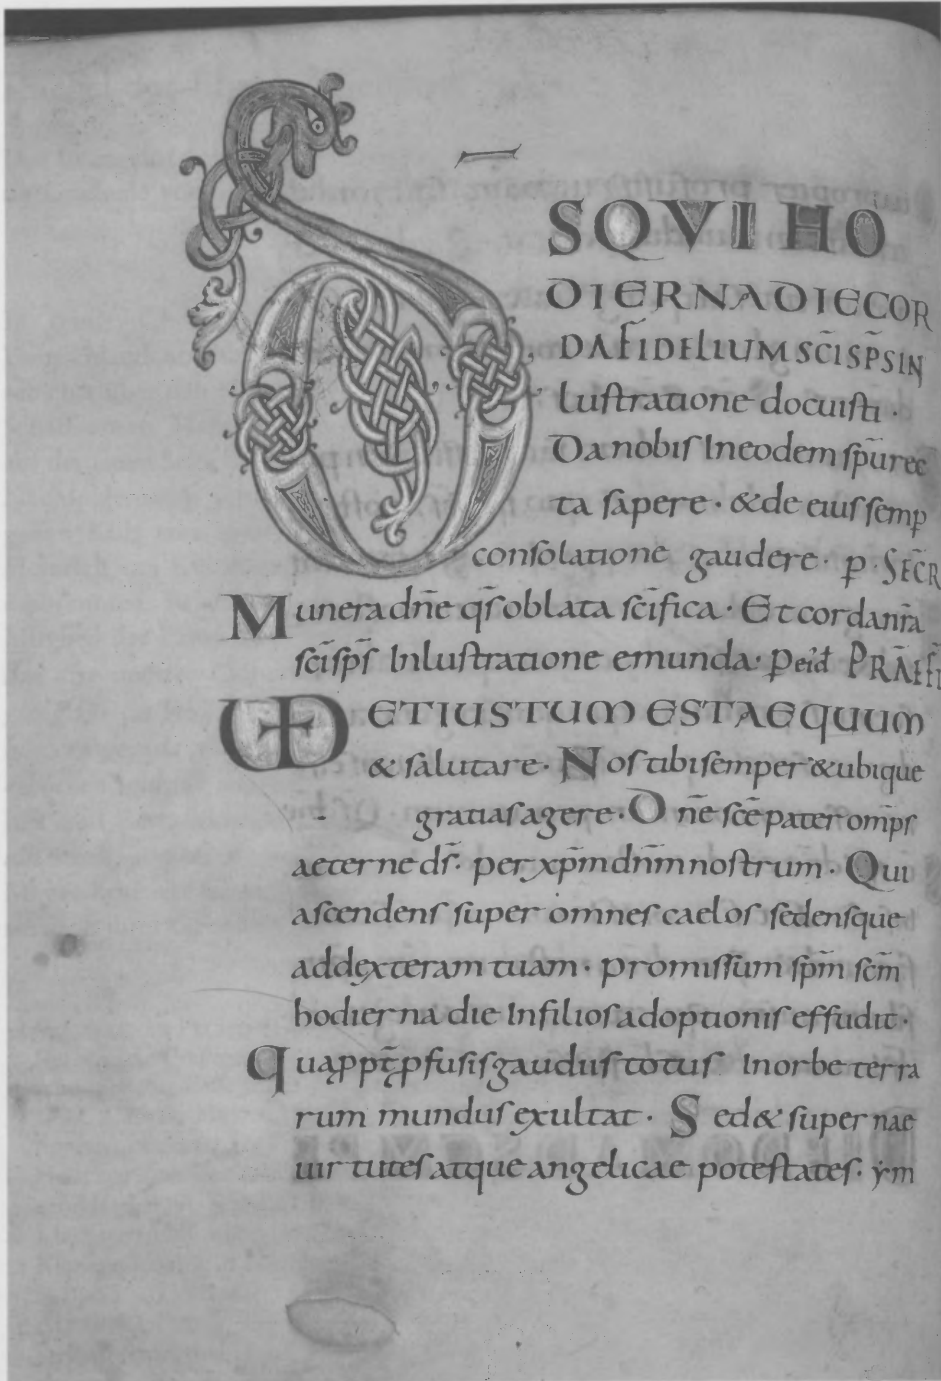 DSQVIHO
DIERNADIECOR
DAFIDELIUM SC̄I SP̄S IN
lustratione docuisti ·
Da nobis In eodem sp̄u rec
ta sapere · & de eius semp̲
consolatione gaudere · p̲ · SECR̄
Munera dn̄e qs̄ oblata sc̄ifica · Et corda nr̄a
sc̄i sp̄s Inlustratione emunda · P̲ eid̄ PRAEF̄
VD ETIUSTUM ESTAEQUUM
& salutare · Nos tibi semper & ubique
gratias agere · Dn̄e sc̄e pater omp̄s
aeterne ds̄ · per xp̄m dn̄m nostrum · Qui
ascendens super omnes caelos sedensque
ad dexteram tuam · promissum sp̄m sc̄m
hodierna die In filios adoptionis effudit ·
Quap̲p̲t̄ p̲fusis gaudiis totus In orbe terra
rum mundus exultat · Sed & supernae
uirtutes atque angelicae potestates · ẏm